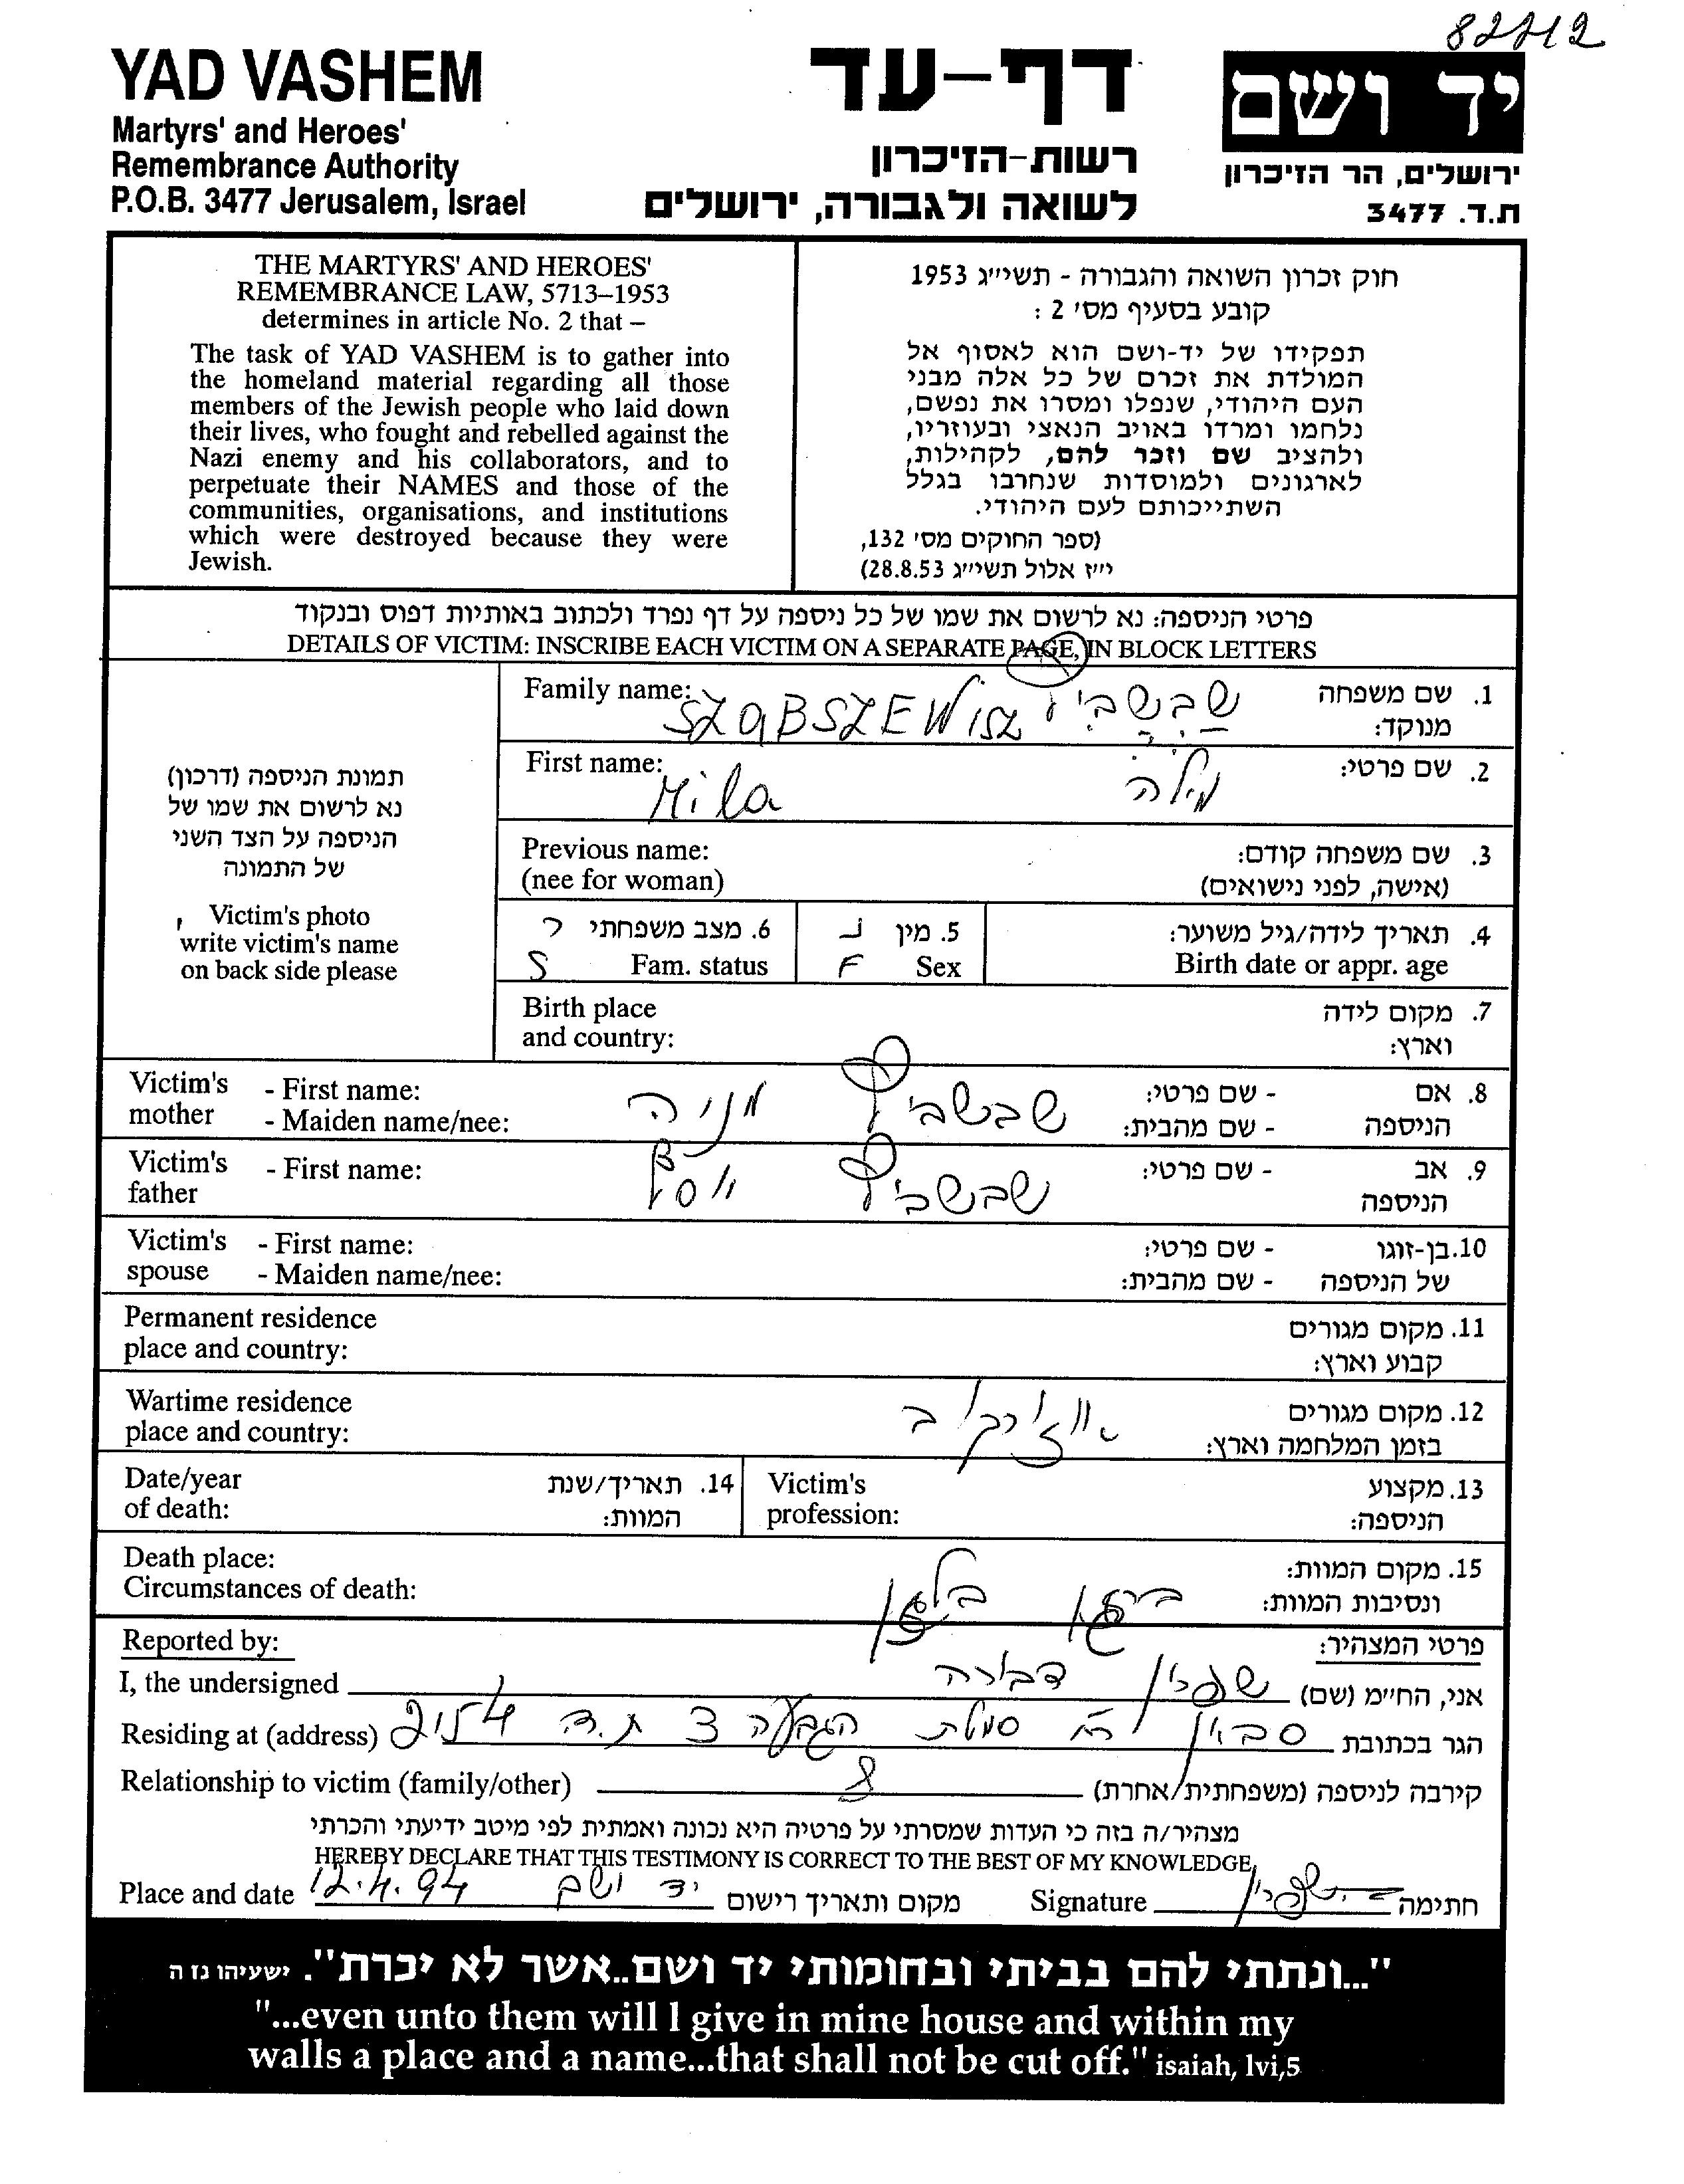 82212
YAD VASHEM
Martyrs' and Heroes'
Remembrance Authority
P.O.B. 3477 Jerusalem, Israel
דף-עד
רשות-הזיכרון
לשואה ולגבורה, ירושלים
יד ושם
ירושלים, הר הזיכרון
ת.ד. 3477
THE MARTYRS' AND HEROES'
REMEMBRANCE LAW, 5713–1953
determines in article No. 2 that –
The task of YAD VASHEM is to gather into
the homeland material regarding all those
members of the Jewish people who laid down
their lives, who fought and rebelled against the
Nazi enemy and his collaborators, and to
perpetuate their NAMES and those of the
communities, organisations, and institutions
which were destroyed because they were
Jewish.
חוק זכרון השואה והגבורה - תשי״ג 1953
קובע בסעיף מס׳ 2 :
תפקידו של יד-ושם הוא לאסוף אל
המולדת את זכרם של כל אלה מבני
העם היהודי, שנפלו ומסרו את נפשם,
נלחמו ומרדו באויב הנאצי ובעוזריו,
ולהציב שם וזכר להם, לקהילות,
לארגונים ולמוסדות שנחרבו בגלל
השתייכותם לעם היהודי.
(ספר החוקים מס׳ 132,
י״ז אלול תשי״ג 28.8.53)
פרטי הניספה: נא לרשום את שמו של כל ניספה על דף נפרד ולכתוב באותיות דפוס ובנקוד
DETAILS OF VICTIM: INSCRIBE EACH VICTIM ON A SEPARATE PAGE, IN BLOCK LETTERS
תמונת הניספה (דרכון)
נא לרשום את שמו של
הניספה על הצד השני
של התמונה
Victim's photo
write victim's name
on back side please
Family name: SZABSZEWISZ שבשביץ 1. שם משפחה
מנוקד:
First name: Mila מילה 2. שם פרטי:
Previous name: 3. שם משפחה קודם:
(nee for woman) (אישה, לפני נישואים)
6. מצב משפחתי ר 5. מין נ 4. תאריך לידה/גיל משוער:
S Fam. status F Sex Birth date or appr. age
Birth place 7. מקום לידה
and country: וארץ:
Victim's - First name: מניה שבשביץ - שם פרטי: 8. אם
mother - Maiden name/nee: - שם מהבית: הניספה
Victim's - First name: יוסף שבשביץ - שם פרטי: 9. אב
father הניספה
Victim's - First name: - שם פרטי: 10. בן-זוגו
spouse - Maiden name/nee: - שם מהבית: של הניספה
Permanent residence 11. מקום מגורים
place and country: קבוע וארץ:
Wartime residence 12. מקום מגורים
place and country: בזמן המלחמה וארץ:
Date/year 14. תאריך/שנת Victim's 13. מקצוע
of death: המוות: profession: הניספה:
Death place: ברגן בלזן 15. מקום המוות:
Circumstances of death: ונסיבות המוות:
Reported by: פרטי המצהיר:
I, the undersigned דבורה אני, החי״מ (שם)
Residing at (address) סביון סמלת הגבעה 3 ת.ד הגר בכתובת
Relationship to victim (family/other) קירבה לניספה (משפחתית/אחרת)
מצהיר/ה בזה כי העדות שמסרתי על פרטיה היא נכונה ואמתית לפי מיטב ידיעתי והכרתי
HEREBY DECLARE THAT THIS TESTIMONY IS CORRECT TO THE BEST OF MY KNOWLEDGE,
Place and date 12.4.94 יד ושם מקום ותאריך רישום Signature חתימה
"...ונתתי להם בביתי ובחומותי יד ושם..אשר לא יכרת". ישעיהו נז ה
"...even unto them will I give in mine house and within my
walls a place and a name...that shall not be cut off." isaiah, lvi,5